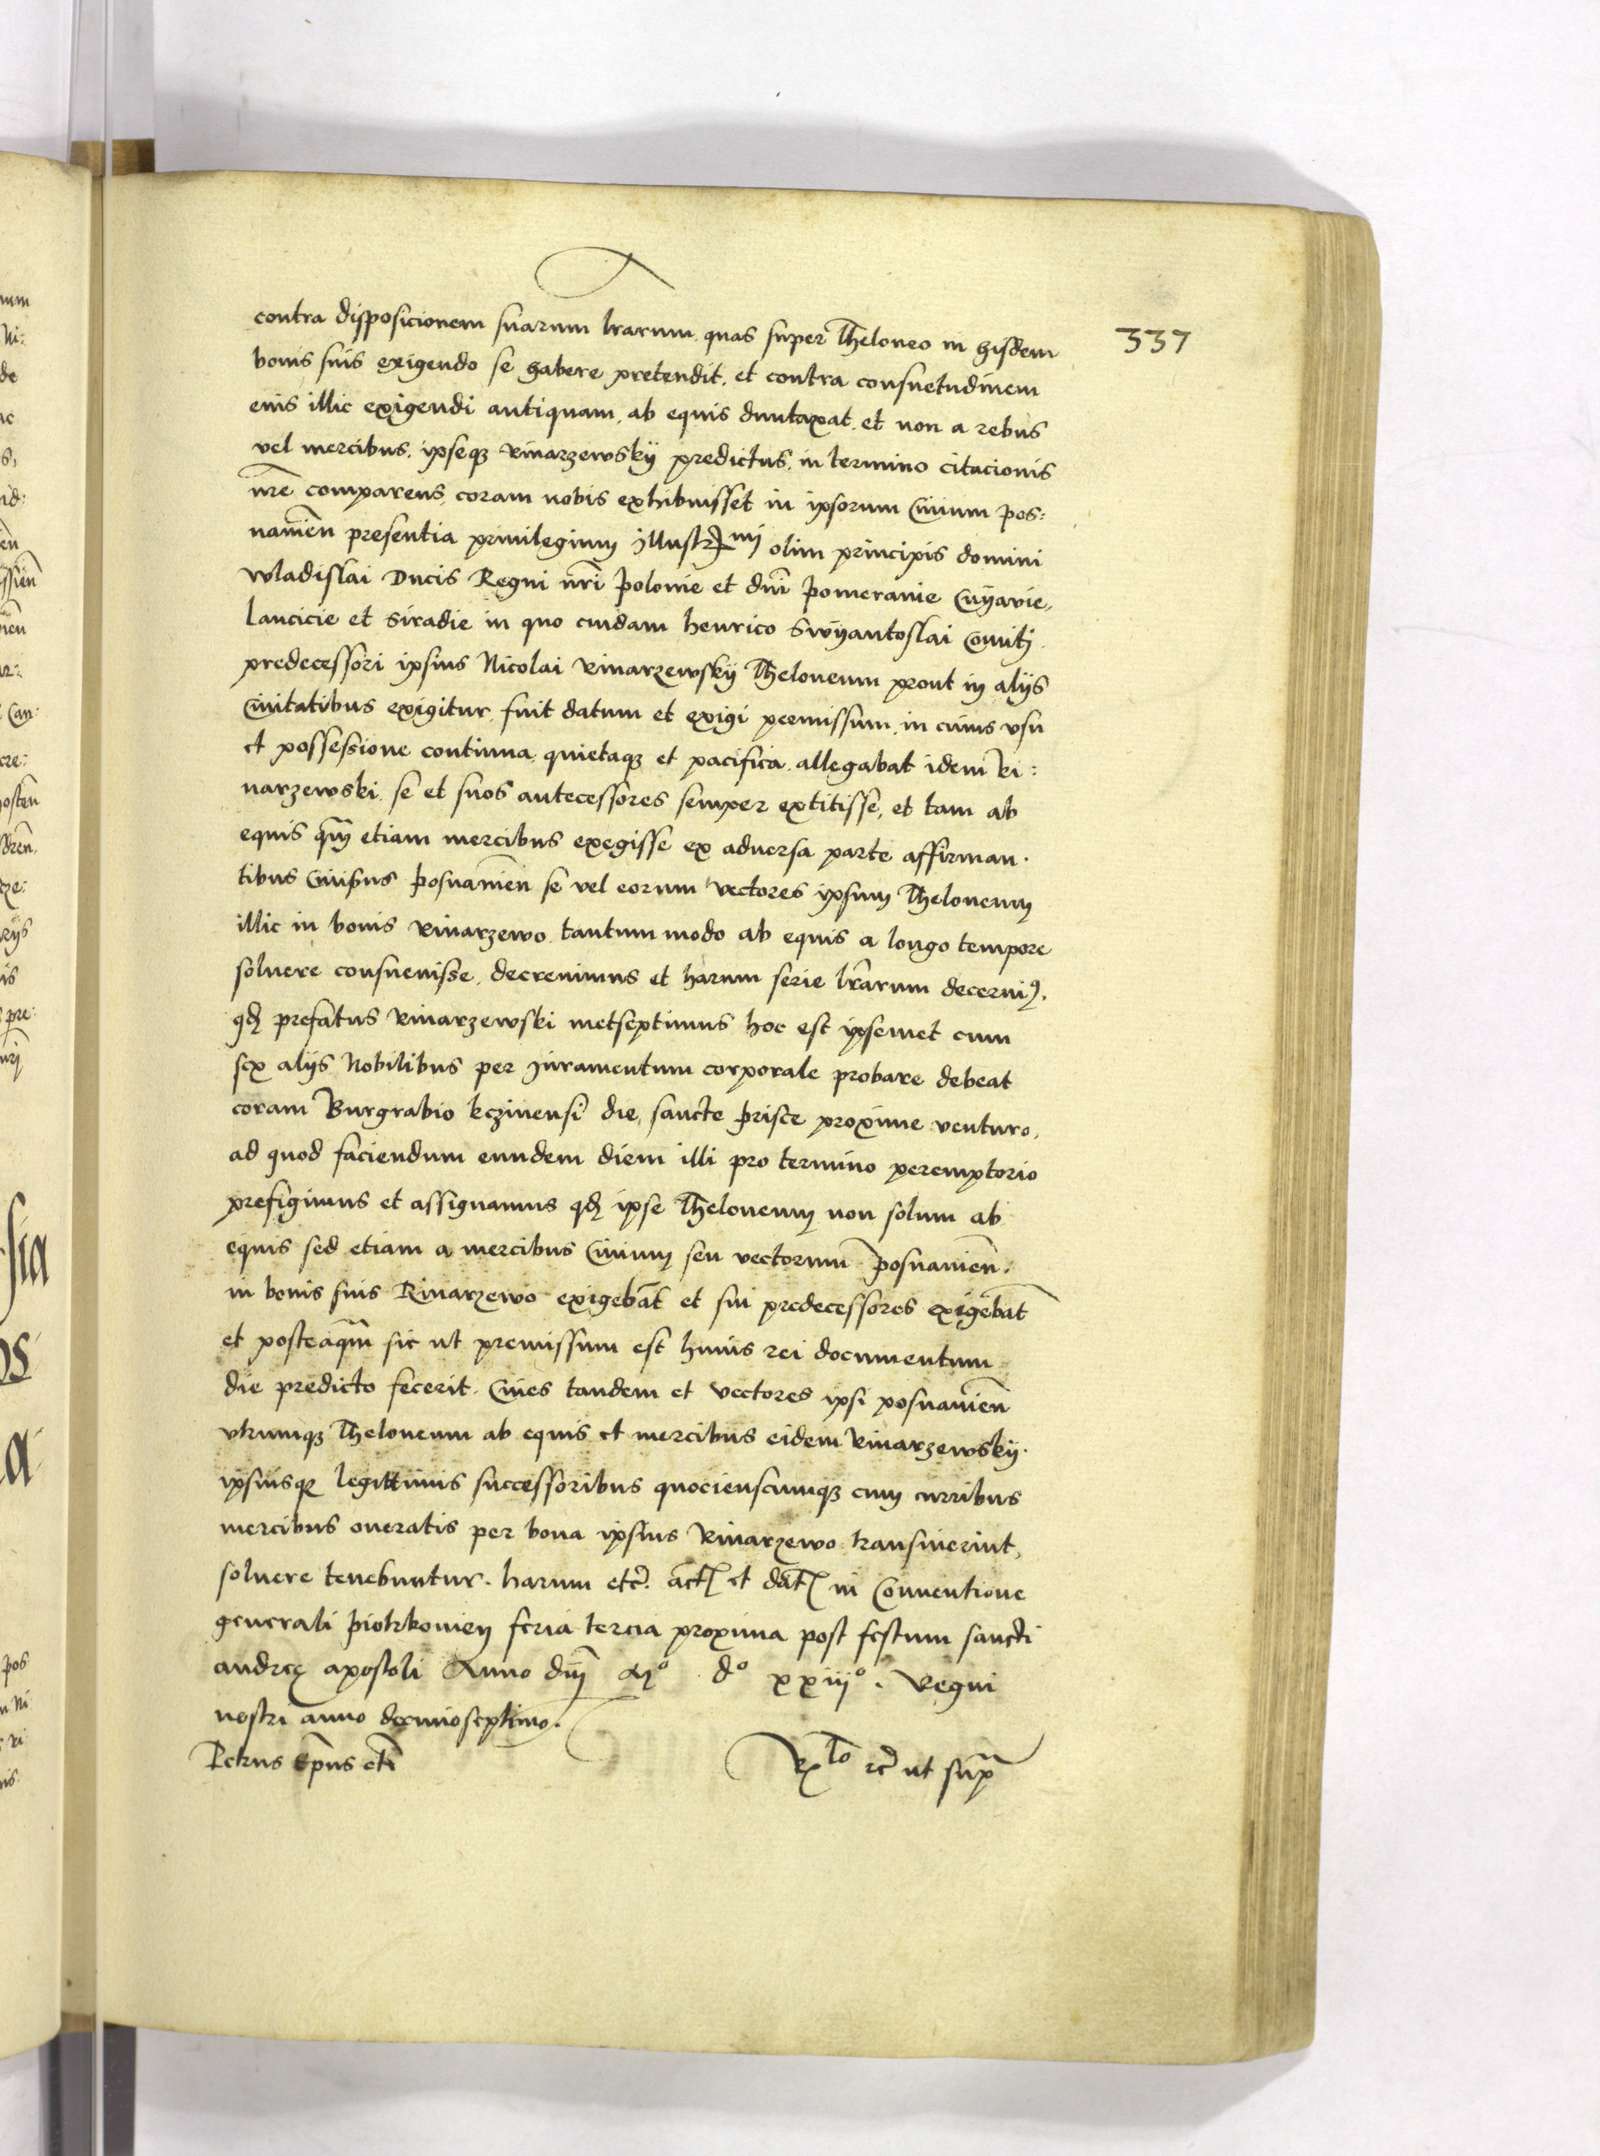 337
contra disposicionem suarum lrarum quas super Theloneo in hisdem
bonis suis exigendo se habere pretendit, et contra consuetudinem
eius illic exigendi antiquam, ab equis duntaxat, et non a rebus
vel mercibus, ipseq3 Rinarzewsky predictus, in termino citacionis
nre comparens, coram nobis exhibuisset in ipsorum Civium Pos:
nanien presentia privilegium Illustrmi olim principis domini
Wladislai Ducis Regni nri Polonie et dni Pomeranie Cuyavie,
Lancicie et Siradie in quo cuidam Henrico Swyantoslai Comiti
predecessori ipsius Nicolai Rinarzewsky Theloneum prout in aliis
Civitatibus exigitur, fuit datum et exigi permissum, in cuius usu
et possessione continua, quietaq3 et pacifica, allegabat idem Ri:
narzewski, se et suos antecessores semper extitisse, et tam ab
equis qm etiam mercibus exegisse ex adversa parte affirman.
tibus Civibus Posnanien se vel eorum vectores ipsum Theloneum
illic in bonis Rinarzewo, tantummodo ab equis a longo tempore
solvere consuevisse, decrevimus et harum serie lrarum decernim9.
qd prefatus Rinarzewski metseptimus hoc est ipsemet cum
sex aliis Nobilibus per iuramentum corporale probare debeat
coram Burgrabio kczinensi die sancte Prisce proxime venturo,
ad quod faciendum eundem diem illi pro termino peremptorio
prefigimus et assignamus qd ipse Theloneum non solum ab
equis sed etiam a mercibus Civium seu vectorum Posnanien.
in bonis suis Rinarzewo exigebat et sui predecessores exigebat
et posteaqm sic ut premissum est huius rei documentum
die predicto fecerit, Cives tandem et vectores ipsi posnanien
utrumq3 Theloneum ab equis et mercibus eidem Rinarzewsky.
ipsiusq3 legittimis successoribus quocienscumq3 cum curribus
mercibus oneratis per bona ipsius Rinarzewo transiverint,
solvere tenebuntur. harum etc. act et dat in Conventione
generali Piotrkovien feria tercia proxima post festum sancti
andree apostoli Anno dni Mo do xxiiio. Regni
nostri anno decimoseptimo.
Petrus Epus etc
Rlo rc ut supra